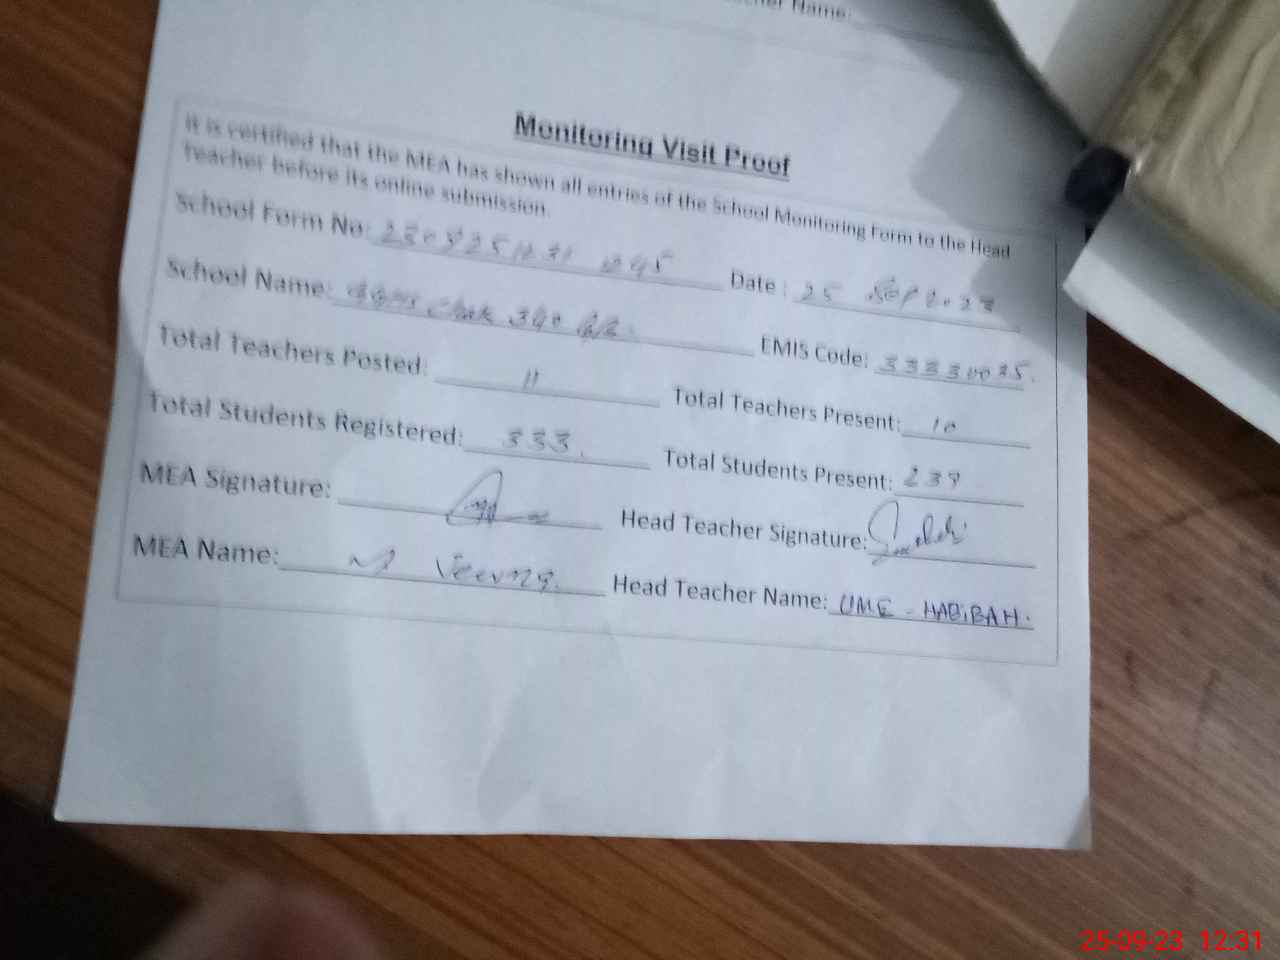 Name:
Monitoring Visit Proof
It is certified that the MEA has shown all entries of the School Monitoring Form to the Head
Teacher before its online submission.
School Form No: Date: 25 Sep 2023
School Name: Chak 340 EMIS Code:
Total Teachers Posted: 11 Total Teachers Present: 10
Total Students Registered: 333 Total Students Present: 239
MEA Signature: Head Teacher Signature:
MEA Name: M Head Teacher Name: UME - HABIBAH.
25-09-23 12:31